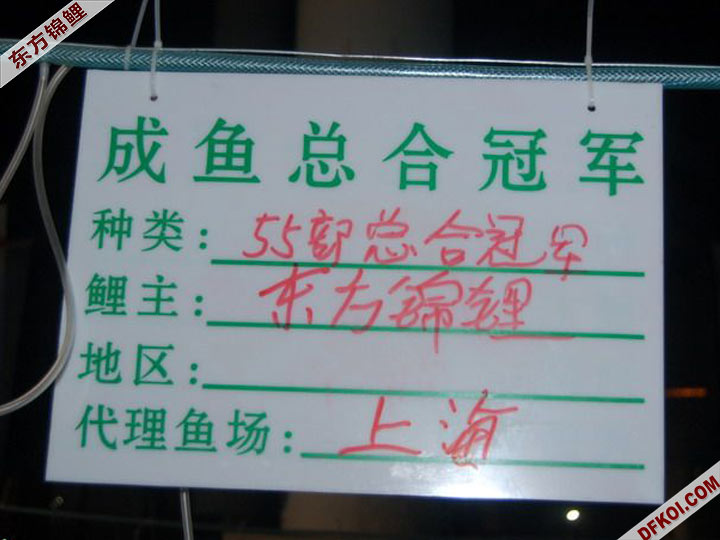 东方锦鲤
成鱼总合冠军
种类：55部总合冠军
鲤主：东方锦鲤
地区：
代理鱼场：上海
DFKOI.COM